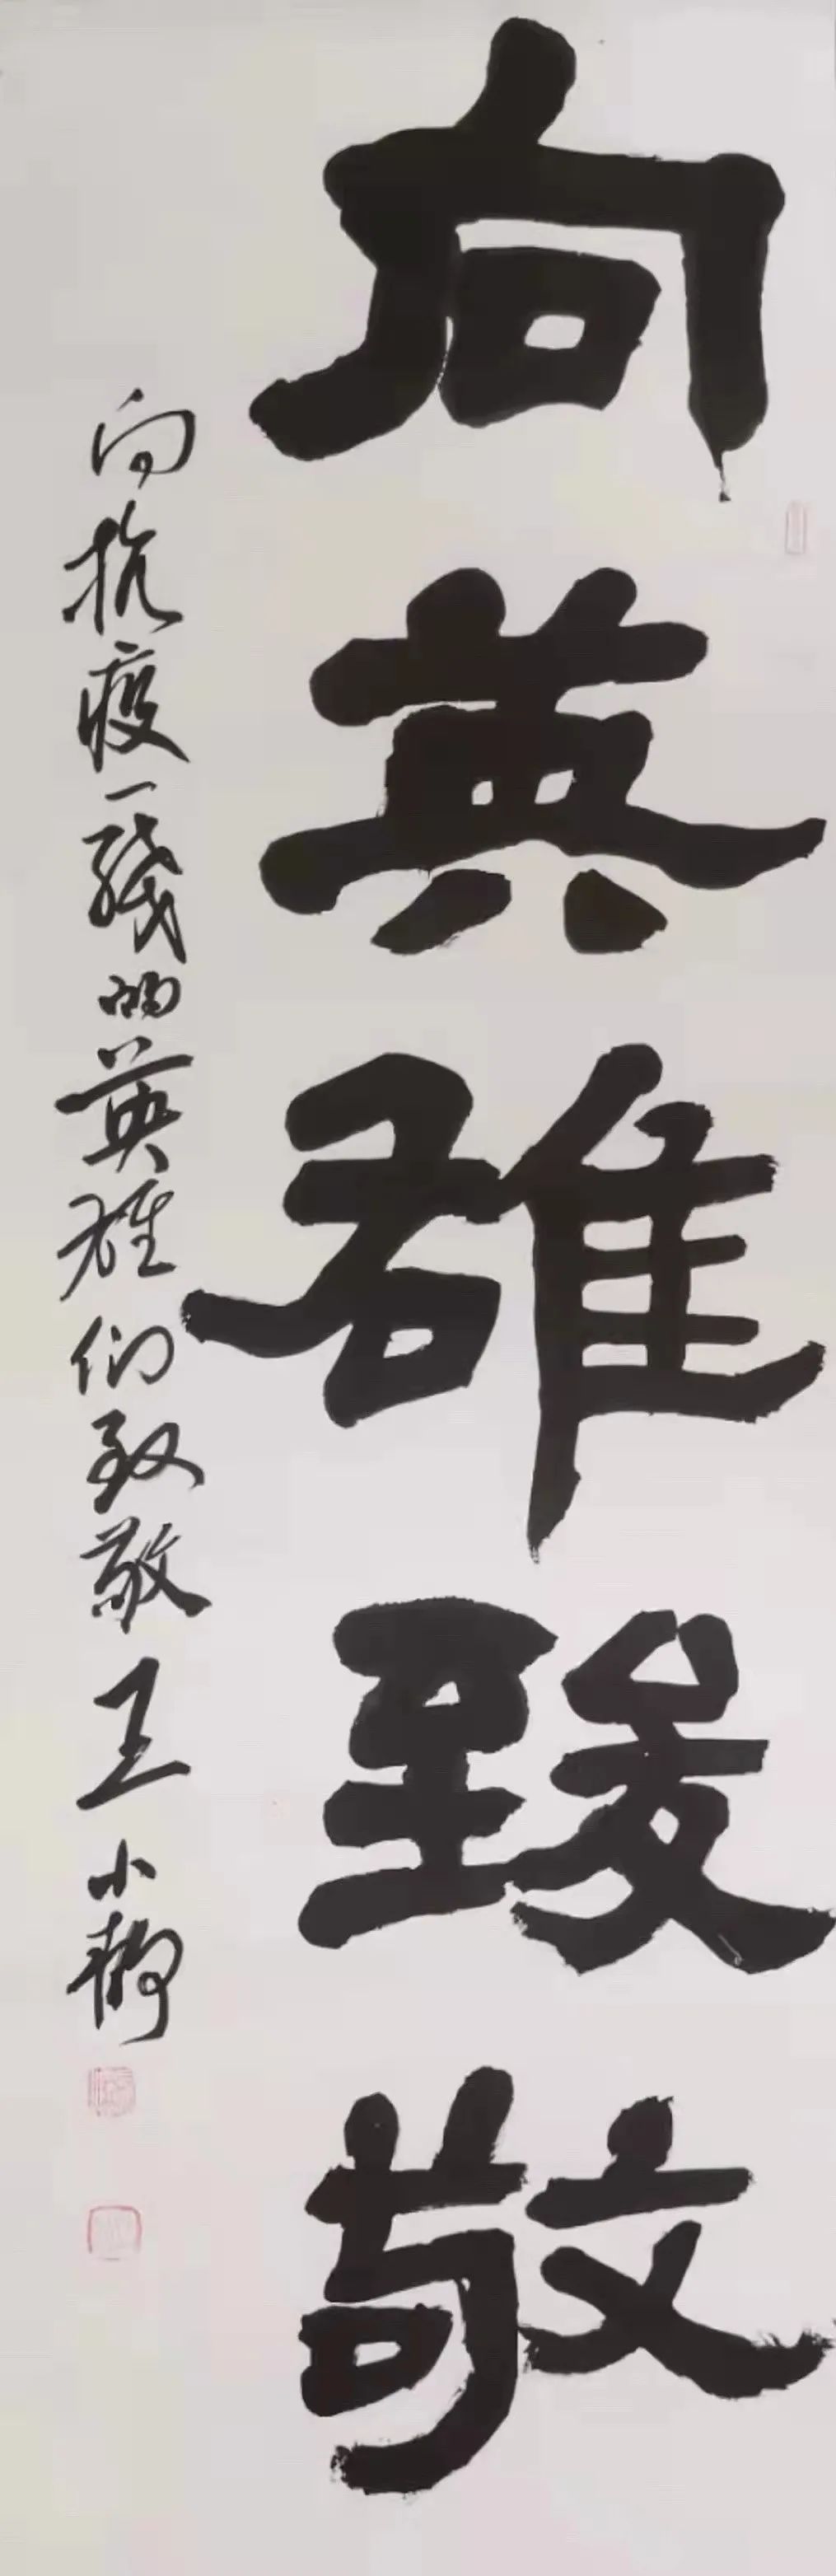 向英雄致敬
向抗疫一线的英雄们致敬 王小